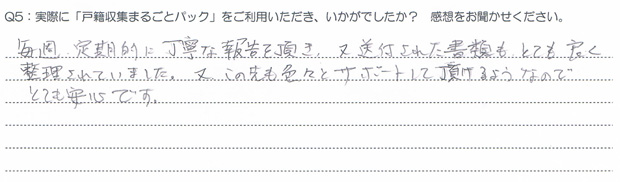 Q5：実際に「戸籍収集まるごとパック」をご利用いただき、いかがでしたか？ 感想をお聞かせください。
毎週、定期的に丁寧な報告を頂き、又送付された書類もとても良く
整理されていました。又、この先も色々とサポートして頂けるようなので
とても安心です。